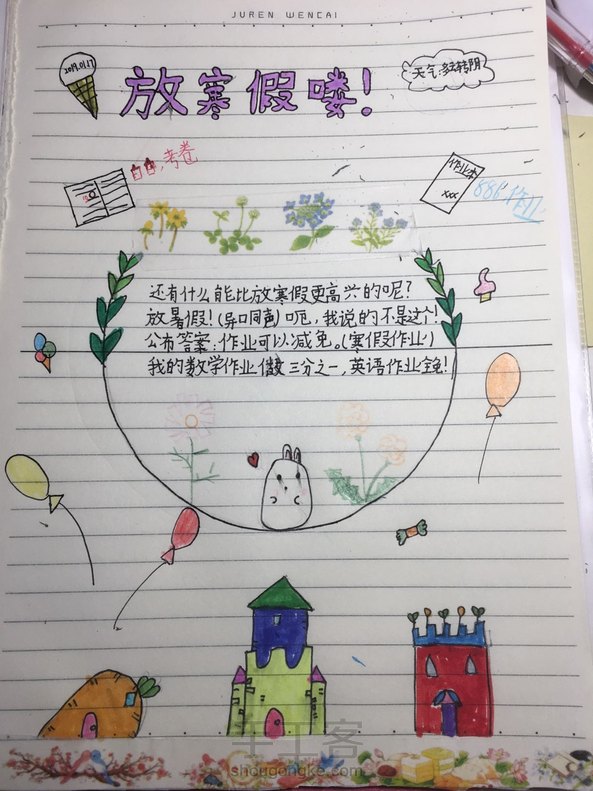 JUREN WENCAI
2019.01.17
天气:多云转阴
放寒假喽!
自由,考卷
作业本
xxx
886 作业
还有什么能比放寒假更高兴的呢?
放暑假!(异口同声)呃,我说的不是这个!
公布答案:作业可以减免。(寒假作业)
我的数学作业做三分之一,英语作业全免!
手工客
shougongke.com